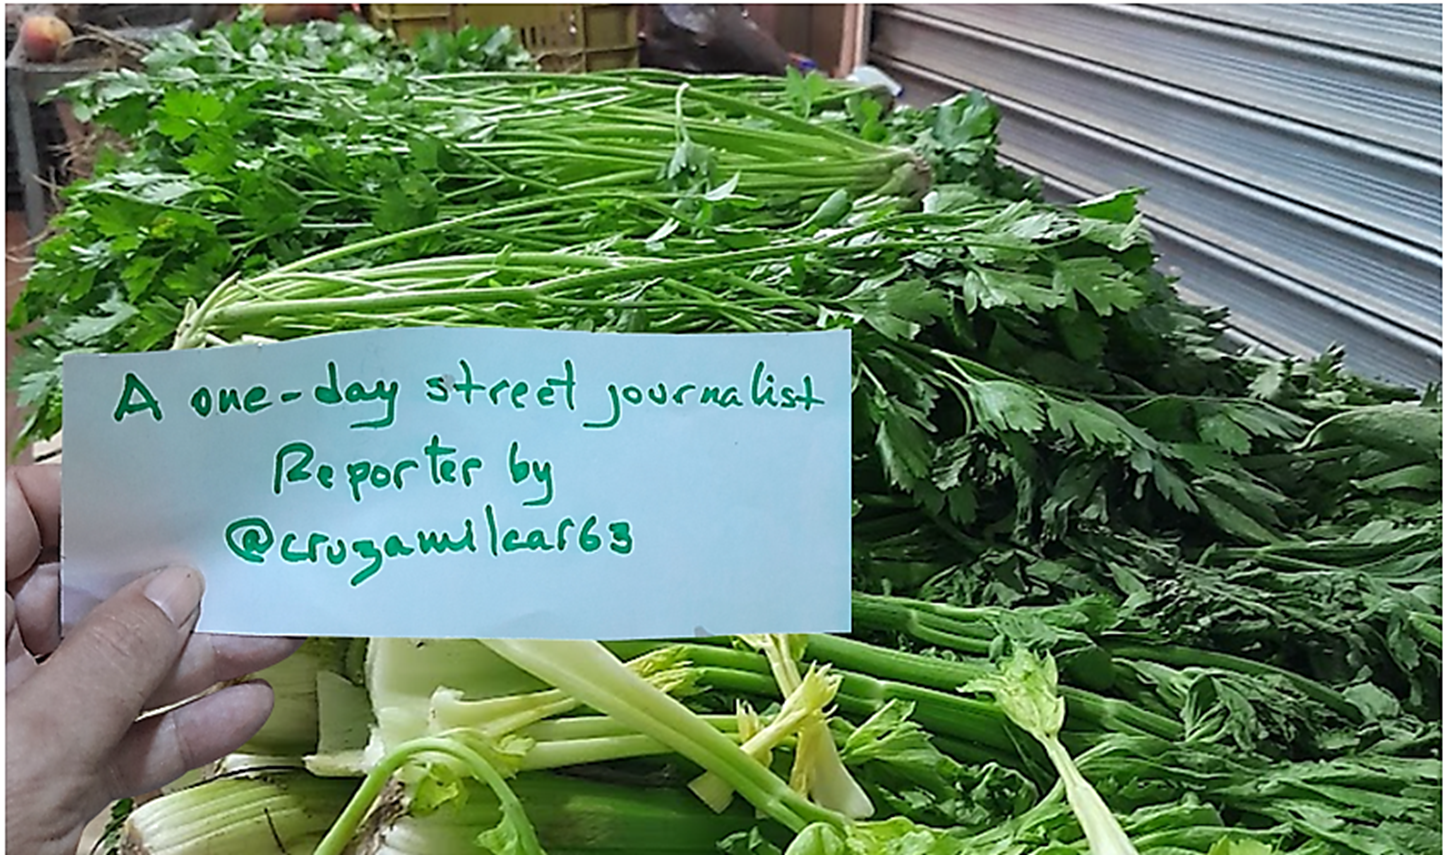 A one-day street journalist
Reporter by
@cruzamilcar63